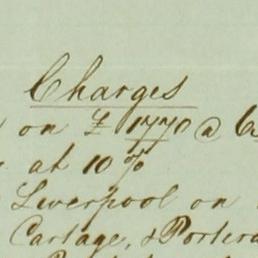 Charges
on £ 1770 @
at 10 %
Liverpool on
Cartage, & Portera